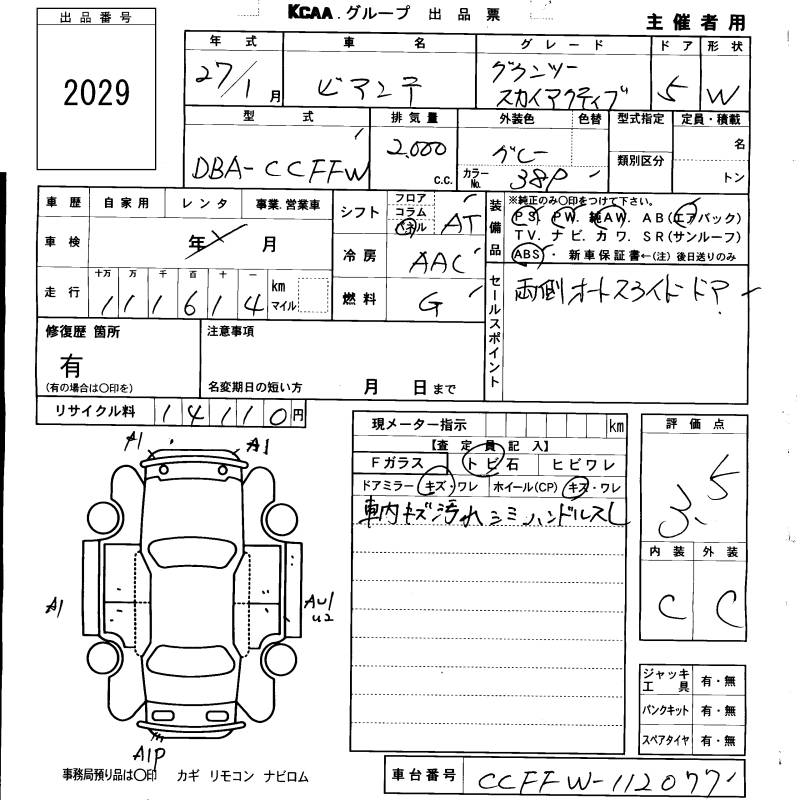 KCAA.グループ 出品票
主催者用
出品番号
2029
年式 車名 グレード ドア 形状
27/1月 ビアンテ グランツー スカイアクティブ 5 W
型式 排気量 外装色 色替 型式指定 定員・積載
DBA-CCFFW 2.000 c.c. グレー
カラーNo. 38P 類別区分 名
トン
車歴 自家用 レンタ 事業.営業車
車検 年 月
走行 十万 万 千 百 十 一
111614 km マイル
シフト フロア コラム パネル AT
冷房 AAC
燃料 G
装備品
※純正のみ〇印をつけて下さい。
PS PW. 純AW. AB(エアバック)
TV. ナビ. カワ. SR(サンルーフ)
ABS ・新車保証書←(注)後日送りのみ
セールスポイント
両側オートスライドドア
修復歴 箇所
有
(有の場合は〇印を)
注意事項
名変期日の短い方 月 日まで
リサイクル料 14110円
現メーター指示 km
【査定員記入】
Fガラス トビ石 ヒビワレ
ドアミラー キズ・ワレ ホイール(CP) キズ・ワレ
車内キズ汚れシミハンドルスレ
評価点
3.5
内装 外装
C C
A1 A1
A1
AU1
U2
A1P
ジャッキ工具 有・無
パンクキット 有・無
スペアタイヤ 有・無
事務局預り品は〇印 カギ リモコン ナビロム
車台番号 CCFFW-112077